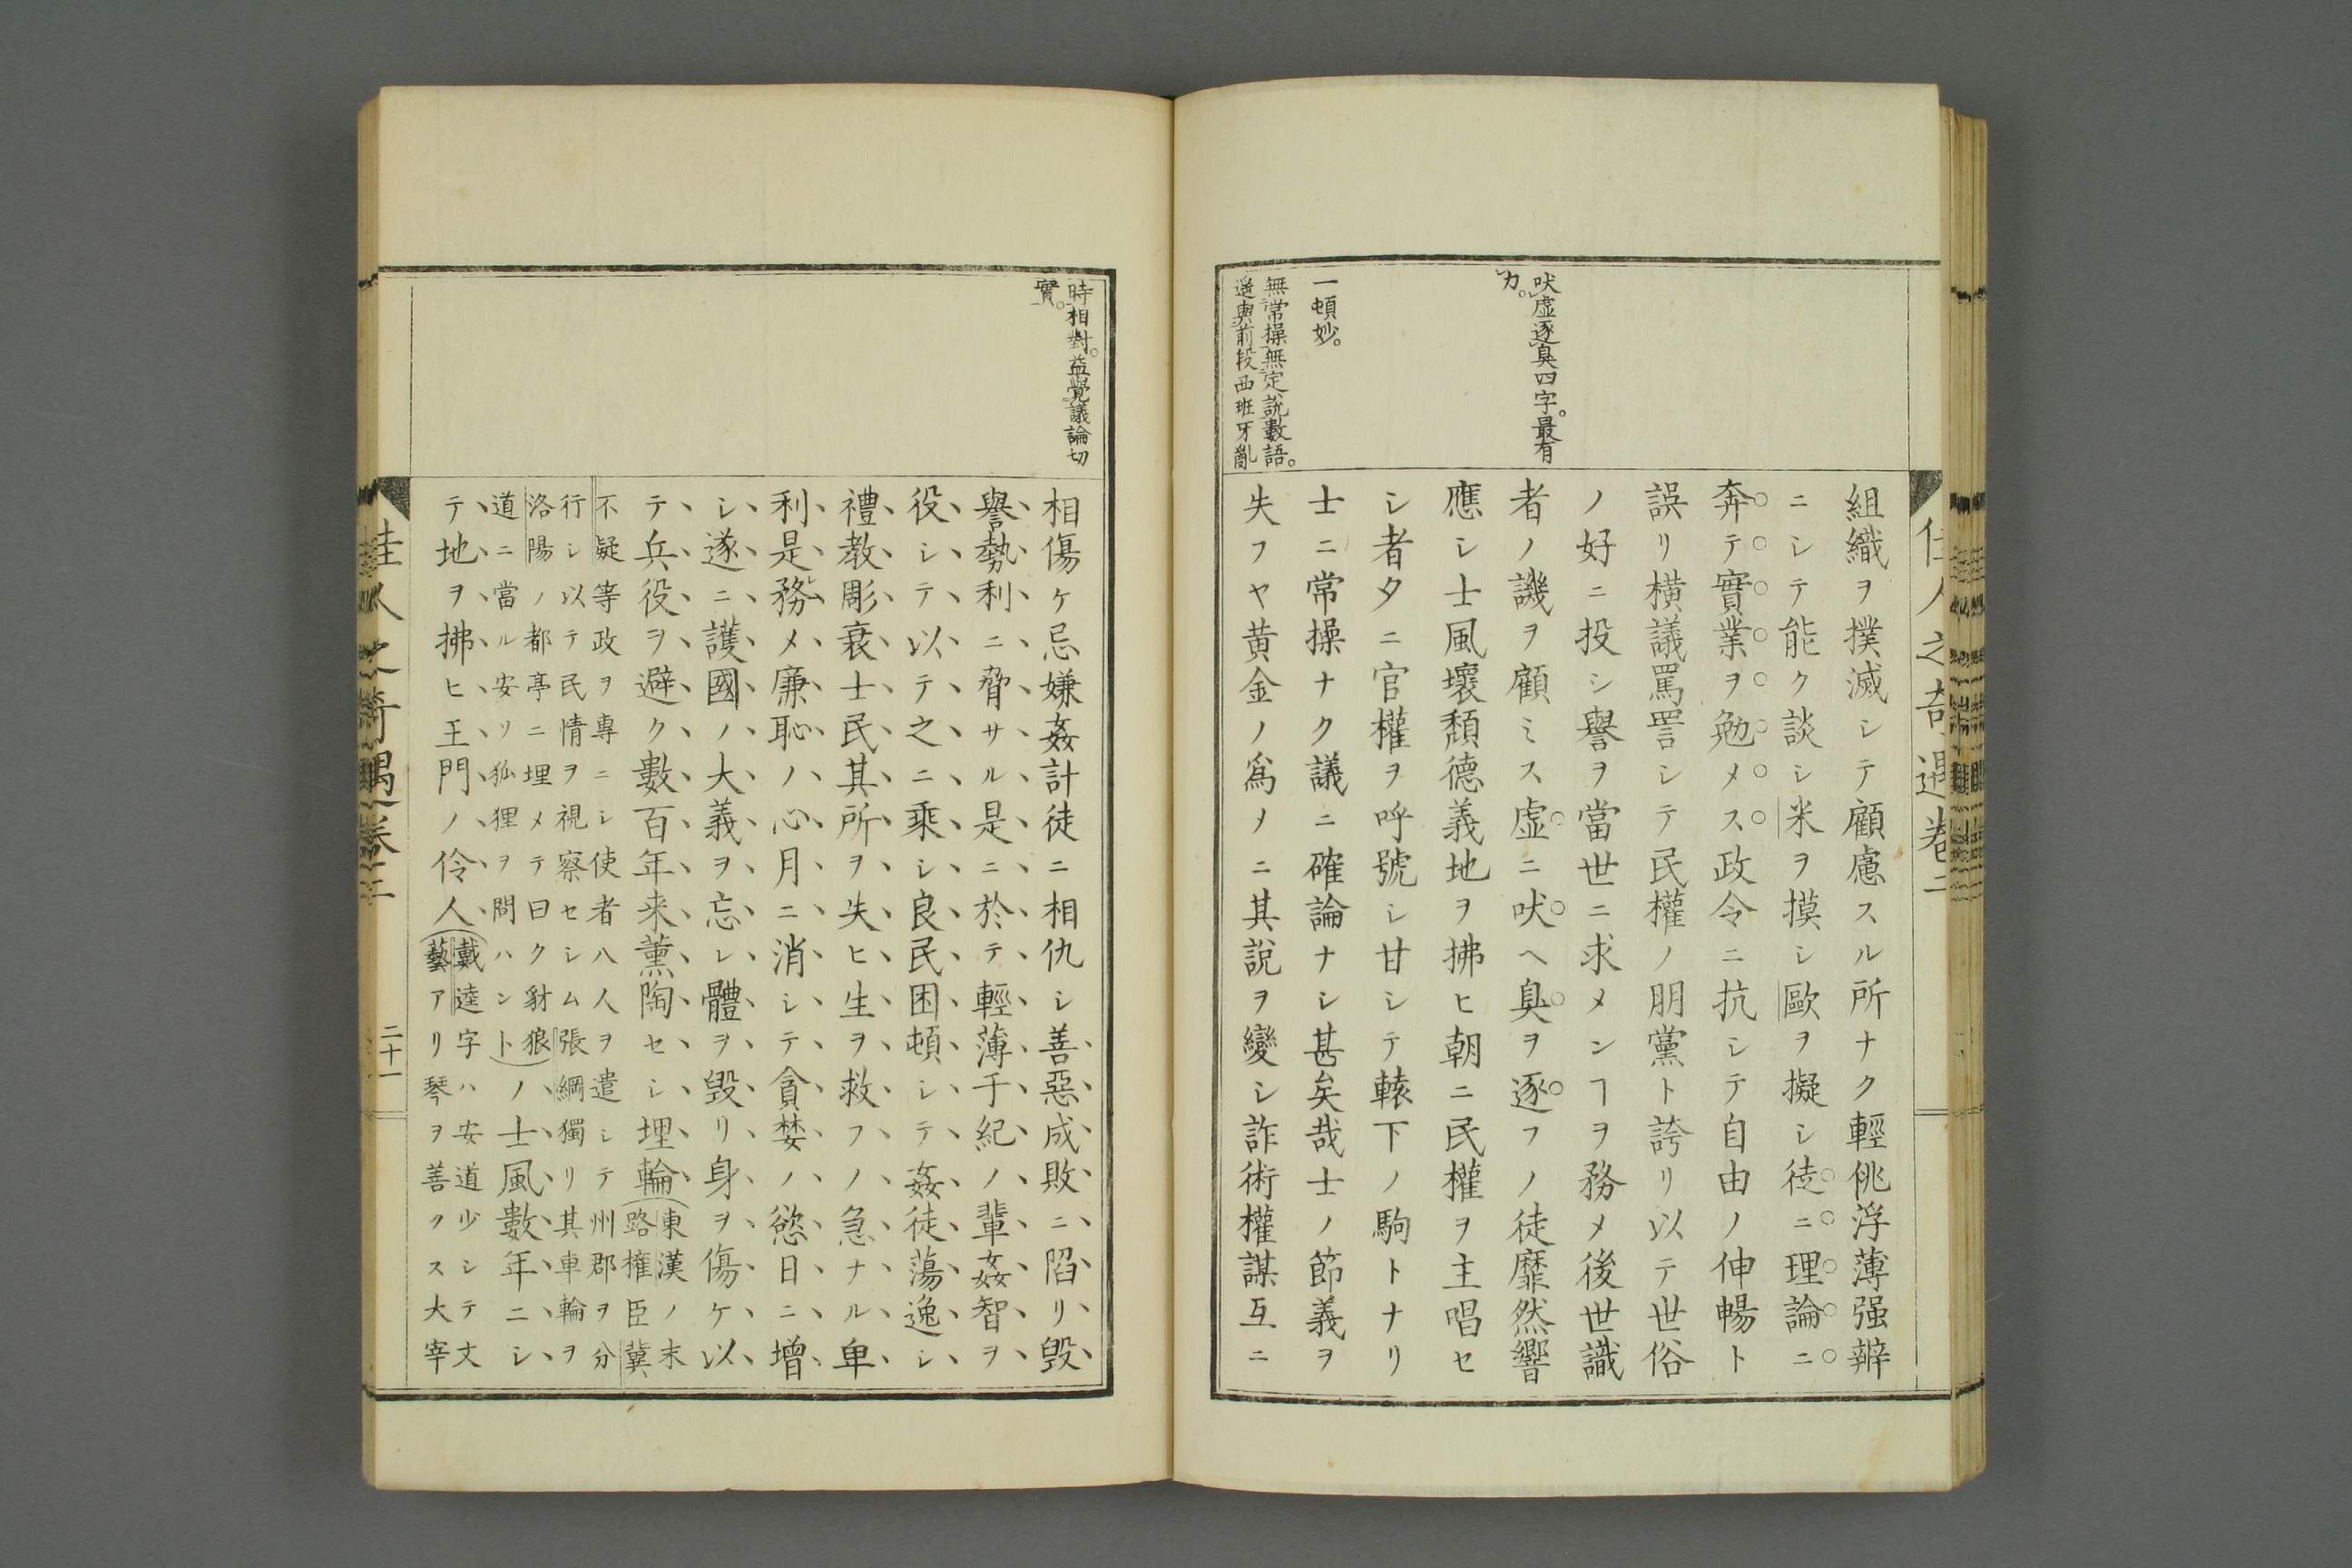 吠虛逐臭四字。最有
力。
一頓妙。
無常操無定說數語。
遥與前段西班牙亂
組織ヲ撲滅シテ顧慮スル所ナク輕佻浮薄强辯
ニシテ能ク談シ米ヲ摸シ歐ヲ擬シ徒ニ理論ニ
奔テ實業ヲ勉メス政令ニ抗シテ自由ノ伸暢ト
誤リ橫議罵詈シテ民權ノ朋黨ト誇リ以テ世俗
ノ好ニ投シ譽ヲ當世ニ求メンヿヲ務メ後世識
者ノ譏ヲ顧ミス虛ニ吠ヘ臭ヲ逐フノ徒靡然響
應シ士風壞頽德義地ヲ拂ヒ朝ニ民權ヲ主唱セ
シ者タニ官權ヲ呼號シ甘シテ轅下ノ駒トナリ
士ニ常操ナク議ニ確論ナシ甚矣哉士ノ節義ヲ
失フヤ黃金ノ爲メニ其說ヲ變シ詐術權謀互ニ
佳人之奇遇卷二
時相對。益覺議論切
實。
相傷ケ忌嫌姦計徒ニ相仇シ善惡成敗ニ陷リ毀
譽勢利ニ脅サル是ニ於テ輕薄干紀ノ輩姦智ヲ
役シテ以テ之ニ乘シ良民困頓シテ姦徒蕩逸シ
禮敎彫衰士民其所ヲ失ヒ生ヲ救フノ急ナル卑
利是務メ廉恥ノ心月ニ消シテ貪婪ノ慾日ニ增
シ遂ニ護國ノ大義ヲ忘レ體ヲ毀リ身ヲ傷ケ以
テ兵役ヲ避ク數百年来薰陶セシ埋輪(東漢ノ末
路權臣冀
不疑等政ヲ專ニシ使者八人ヲ遣シテ州郡ヲ分
行シ以テ民情ヲ視察セシム張綱獨リ其車輪ヲ
洛陽ノ都亭ニ埋メテ曰ク豺狼
道ニ當ル安リソ狐狸ヲ問ハント)ノ士風數年ニシ
テ地ヲ拂ヒ王門ノ伶人(戴逵字ハ安道少シテ文
藝アリ琴ヲ善クス大宰
佳人之奇遇卷二
二十一